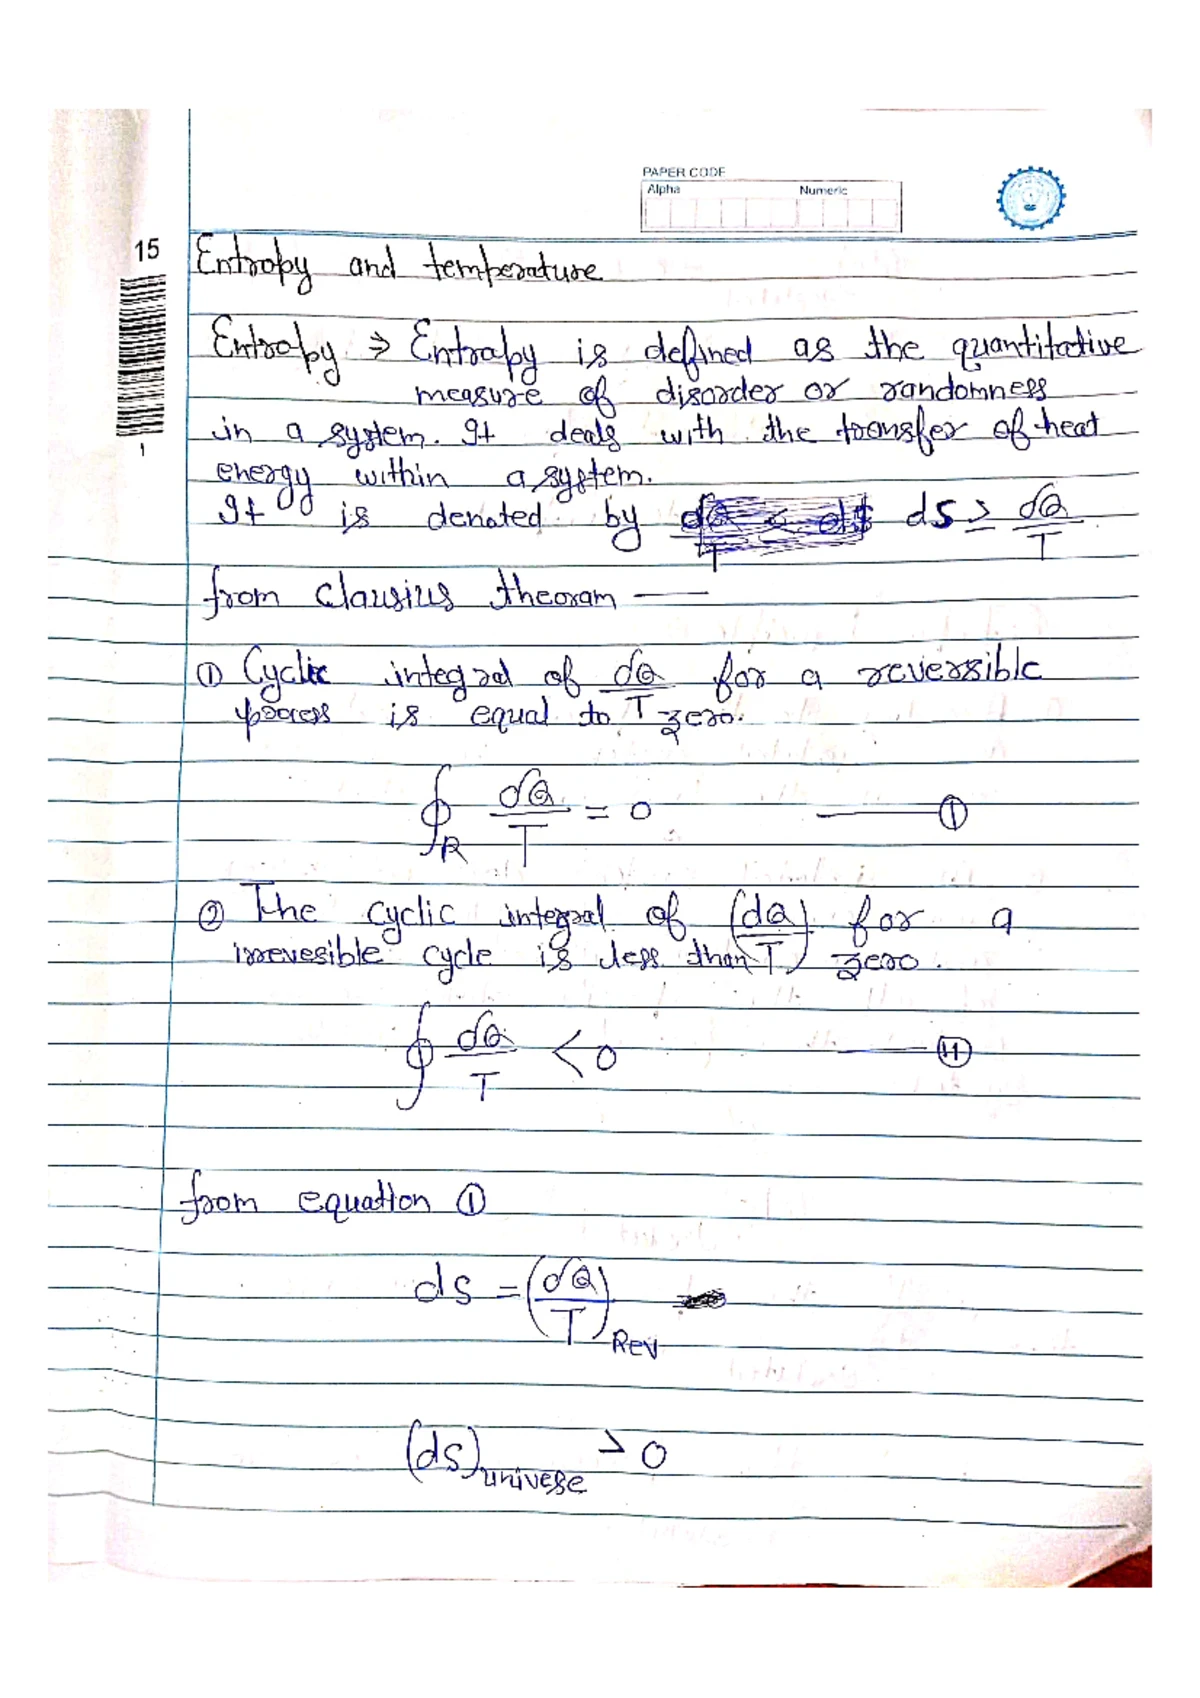 PAPER CODE
Alpha Numeric
15
1
Entropy and temperature
Entropy ⇒ Entropy is defined as the quantitative
measure of disorder or randomness
in a system. It deals with the transfer of heat
energy within a system.
It is denoted by dS ≥ dQ/T
from Clausius theoram —
① Cyclic integral of dQ/T for a reversible
process is equal to zero.
∮R dQ/T = 0 — ①
② The cyclic integral of (dQ/T) for a
irrevesible cycle is less than zero.
∮ dQ/T < 0 — ⑪
from equation ①
ds = (dQ/T)Rev
(ds)univese > 0